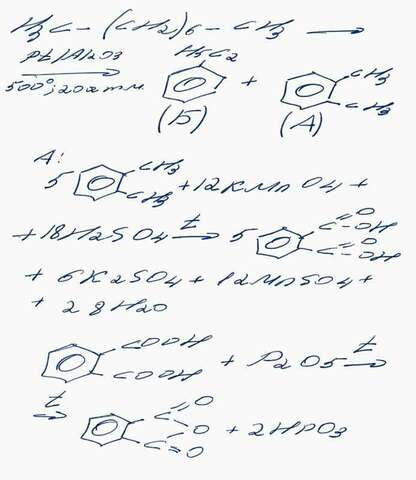 H3C – (CH2)6 – CH3 →
Pt/Al2O3
500°; 20атм.
H5C2
+
CH3
CH3
(Б)
(А)
А:
5
CH3
CH3
+12KMnO4 +
+18H2SO4 t → 5
C =O
OH
C =O
OH
+ 6K2SO4 + 12MnSO4 +
+ 28H2O
COOH
COOH
+ P2O5 t →
t →
C =O
O
C =O
+ 2HPO3